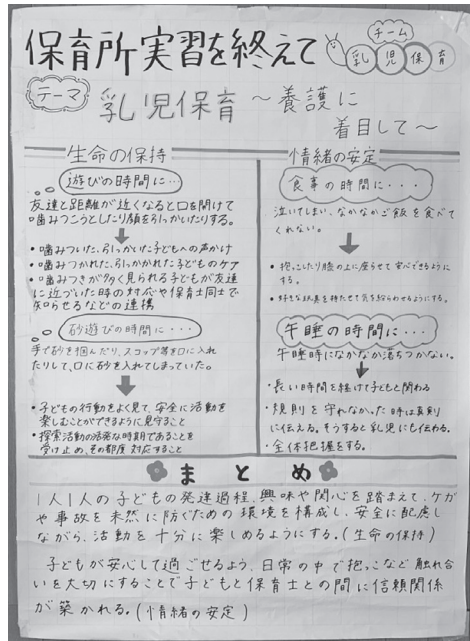 保育所実習を終えて
チーム
乳児保育
テーマ
乳児保育 ～養護に
着目して～
生命の保持
遊びの時間に…
友達と距離が近くなると口を開けて
噛みつこうとしたり顔を引っかいたりする。
・噛みついた、引っかいた子どもへの声かけ
・噛みつかれた、引っかかれた子どものケア
・噛みつきが多く見られる子どもが友達
に近づいた時の対応や保育士同士で
知らせるなどの連携
砂遊びの時間に・・・
手で砂を掴んだり、スコップ等を口に入れ
たりして、口に砂を入れてしまっていた。
・子どもの行動をよく見て、安全に活動を
楽しむことができるように見守ること
・探索活動の活発な時期であることを
受け止め、その都度対応すること
情緒の安定
食事の時間に・・・
泣いてしまい、なかなかご飯を食べて
くれない。
・抱っこしたり膝の上に座らせて安心できるように
する。
・好きな玩具を持たせて気を紛らわせるようにする。
午睡の時間に・・・
午睡時になかなか落ちつかない。
・長い時間を経けて子どもと関わる
・規則を守れなかった時は真剣
に伝える。そうすると乳児にも伝わる。
・全体把握をする。
まとめ
1人1人の子どもの発達過程、興味や関心を踏まえて、ケガ
や事故を未然に防ぐための環境を構成し、安全に配慮し
ながら、活動を十分に楽しめるようにする。(生命の保持)
子どもが安心して過ごせるよう、日常の中で抱っこなど触れ合
いを大切にすることで子どもと保育士との間に信頼関係
が築かれる。(情緒の安定)